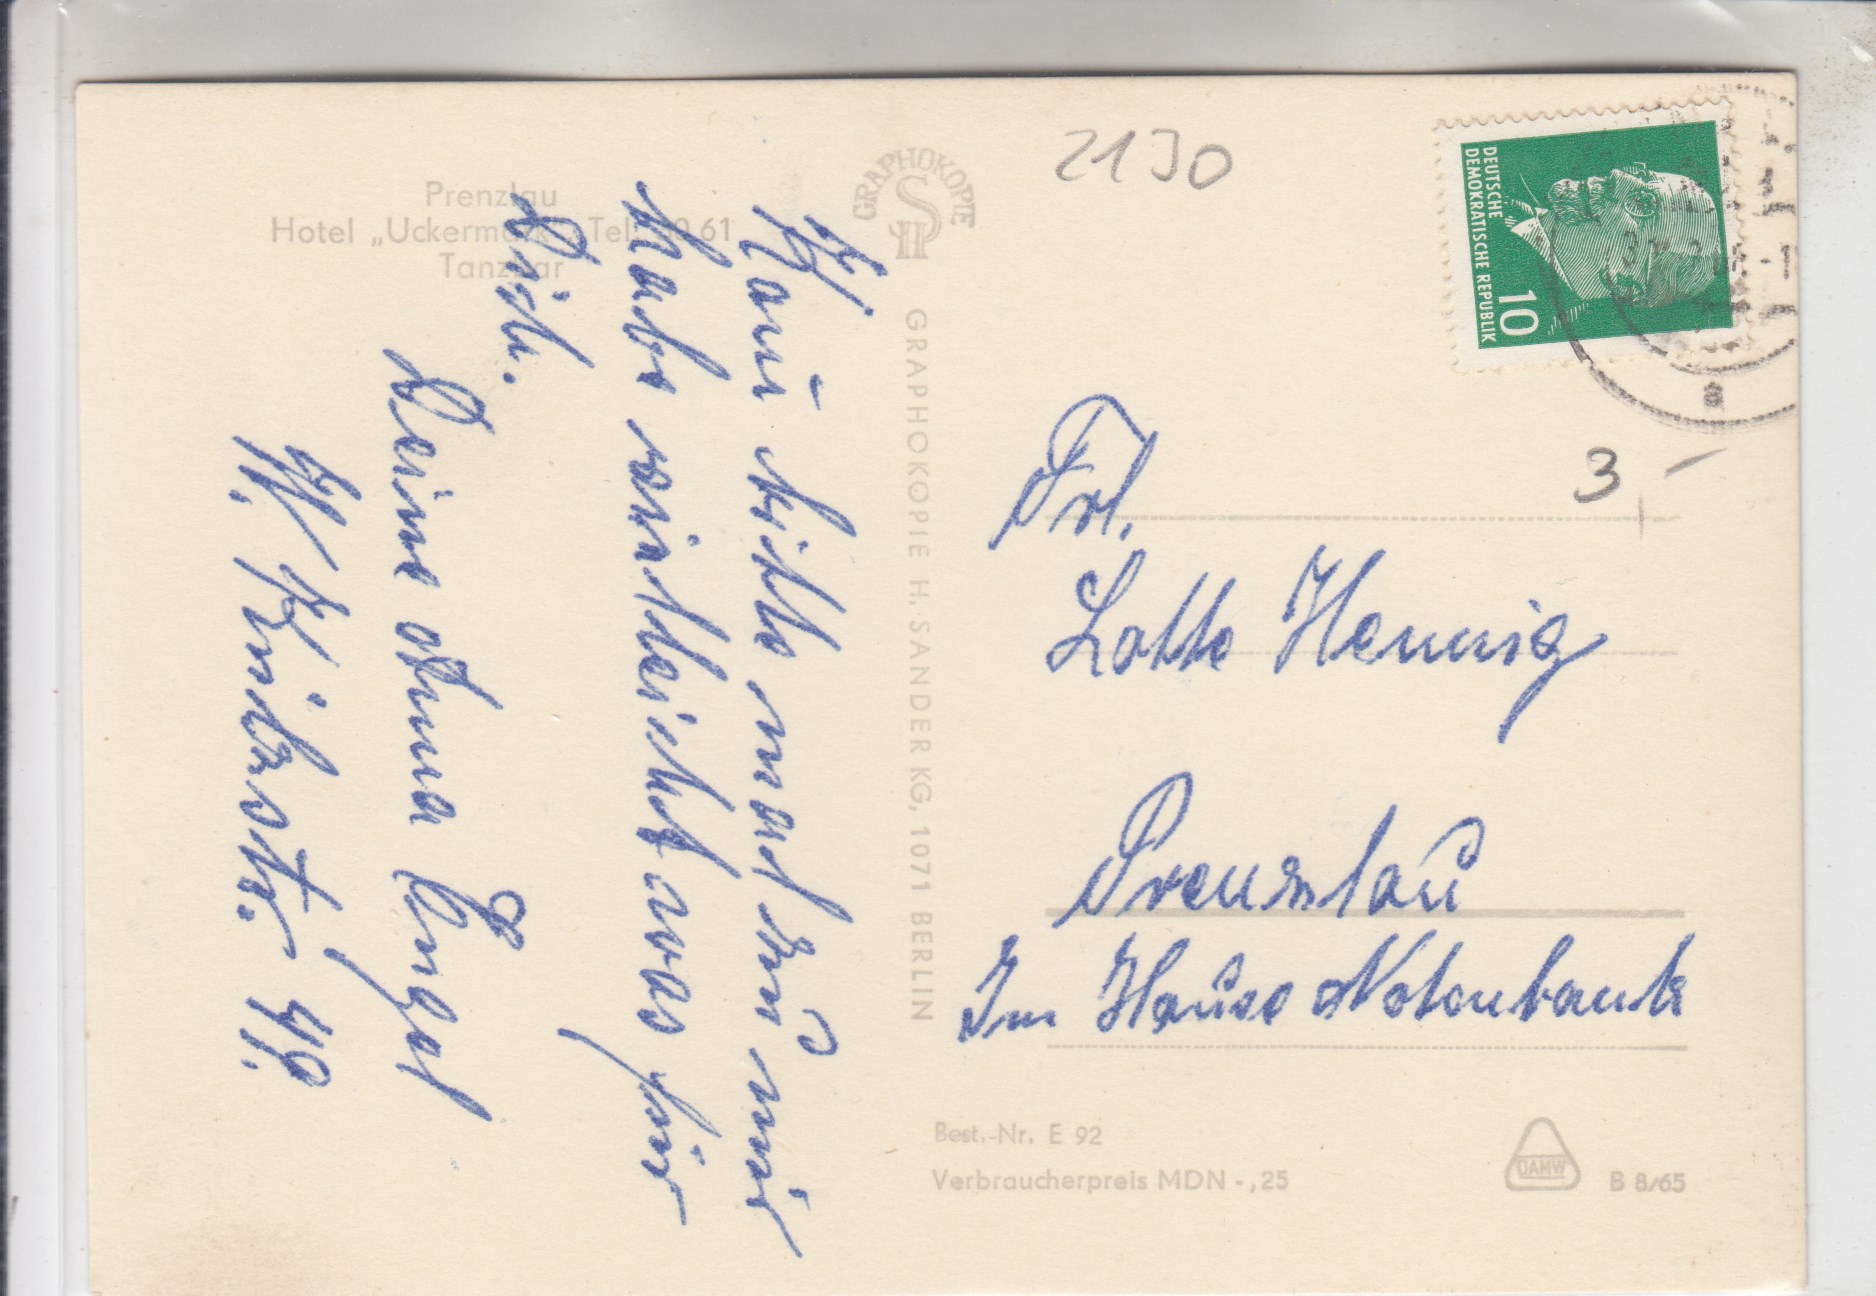 Prenzlau
Hotel „Uckermark" Tel. 61
Tanzbar
Komm bitte mal zu mir
habe vielleicht was für
Dich.
Deine Anna Engel
49.
GRAPHOKOPIE
GRAPHOKOPIE H. SANDER KG, 1071 BERLIN
2130
DEUTSCHE
DEMOKRATISCHE REPUBLIK
10
3
Frl.
Lotte Hennig
Prenzlau
Im Hause Notenbank
Best.-Nr. E 92
Verbraucherpreis MDN -,25
DAMW
B 8/65